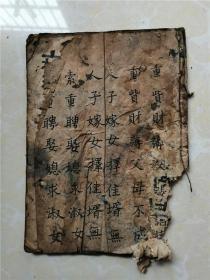 重貲財薄父
重貲財薄父母不成
人子嫁女擇住壻無
人子嫁女擇住壻無
索重聘娶媳求淑女
重聘娶媳求淑女